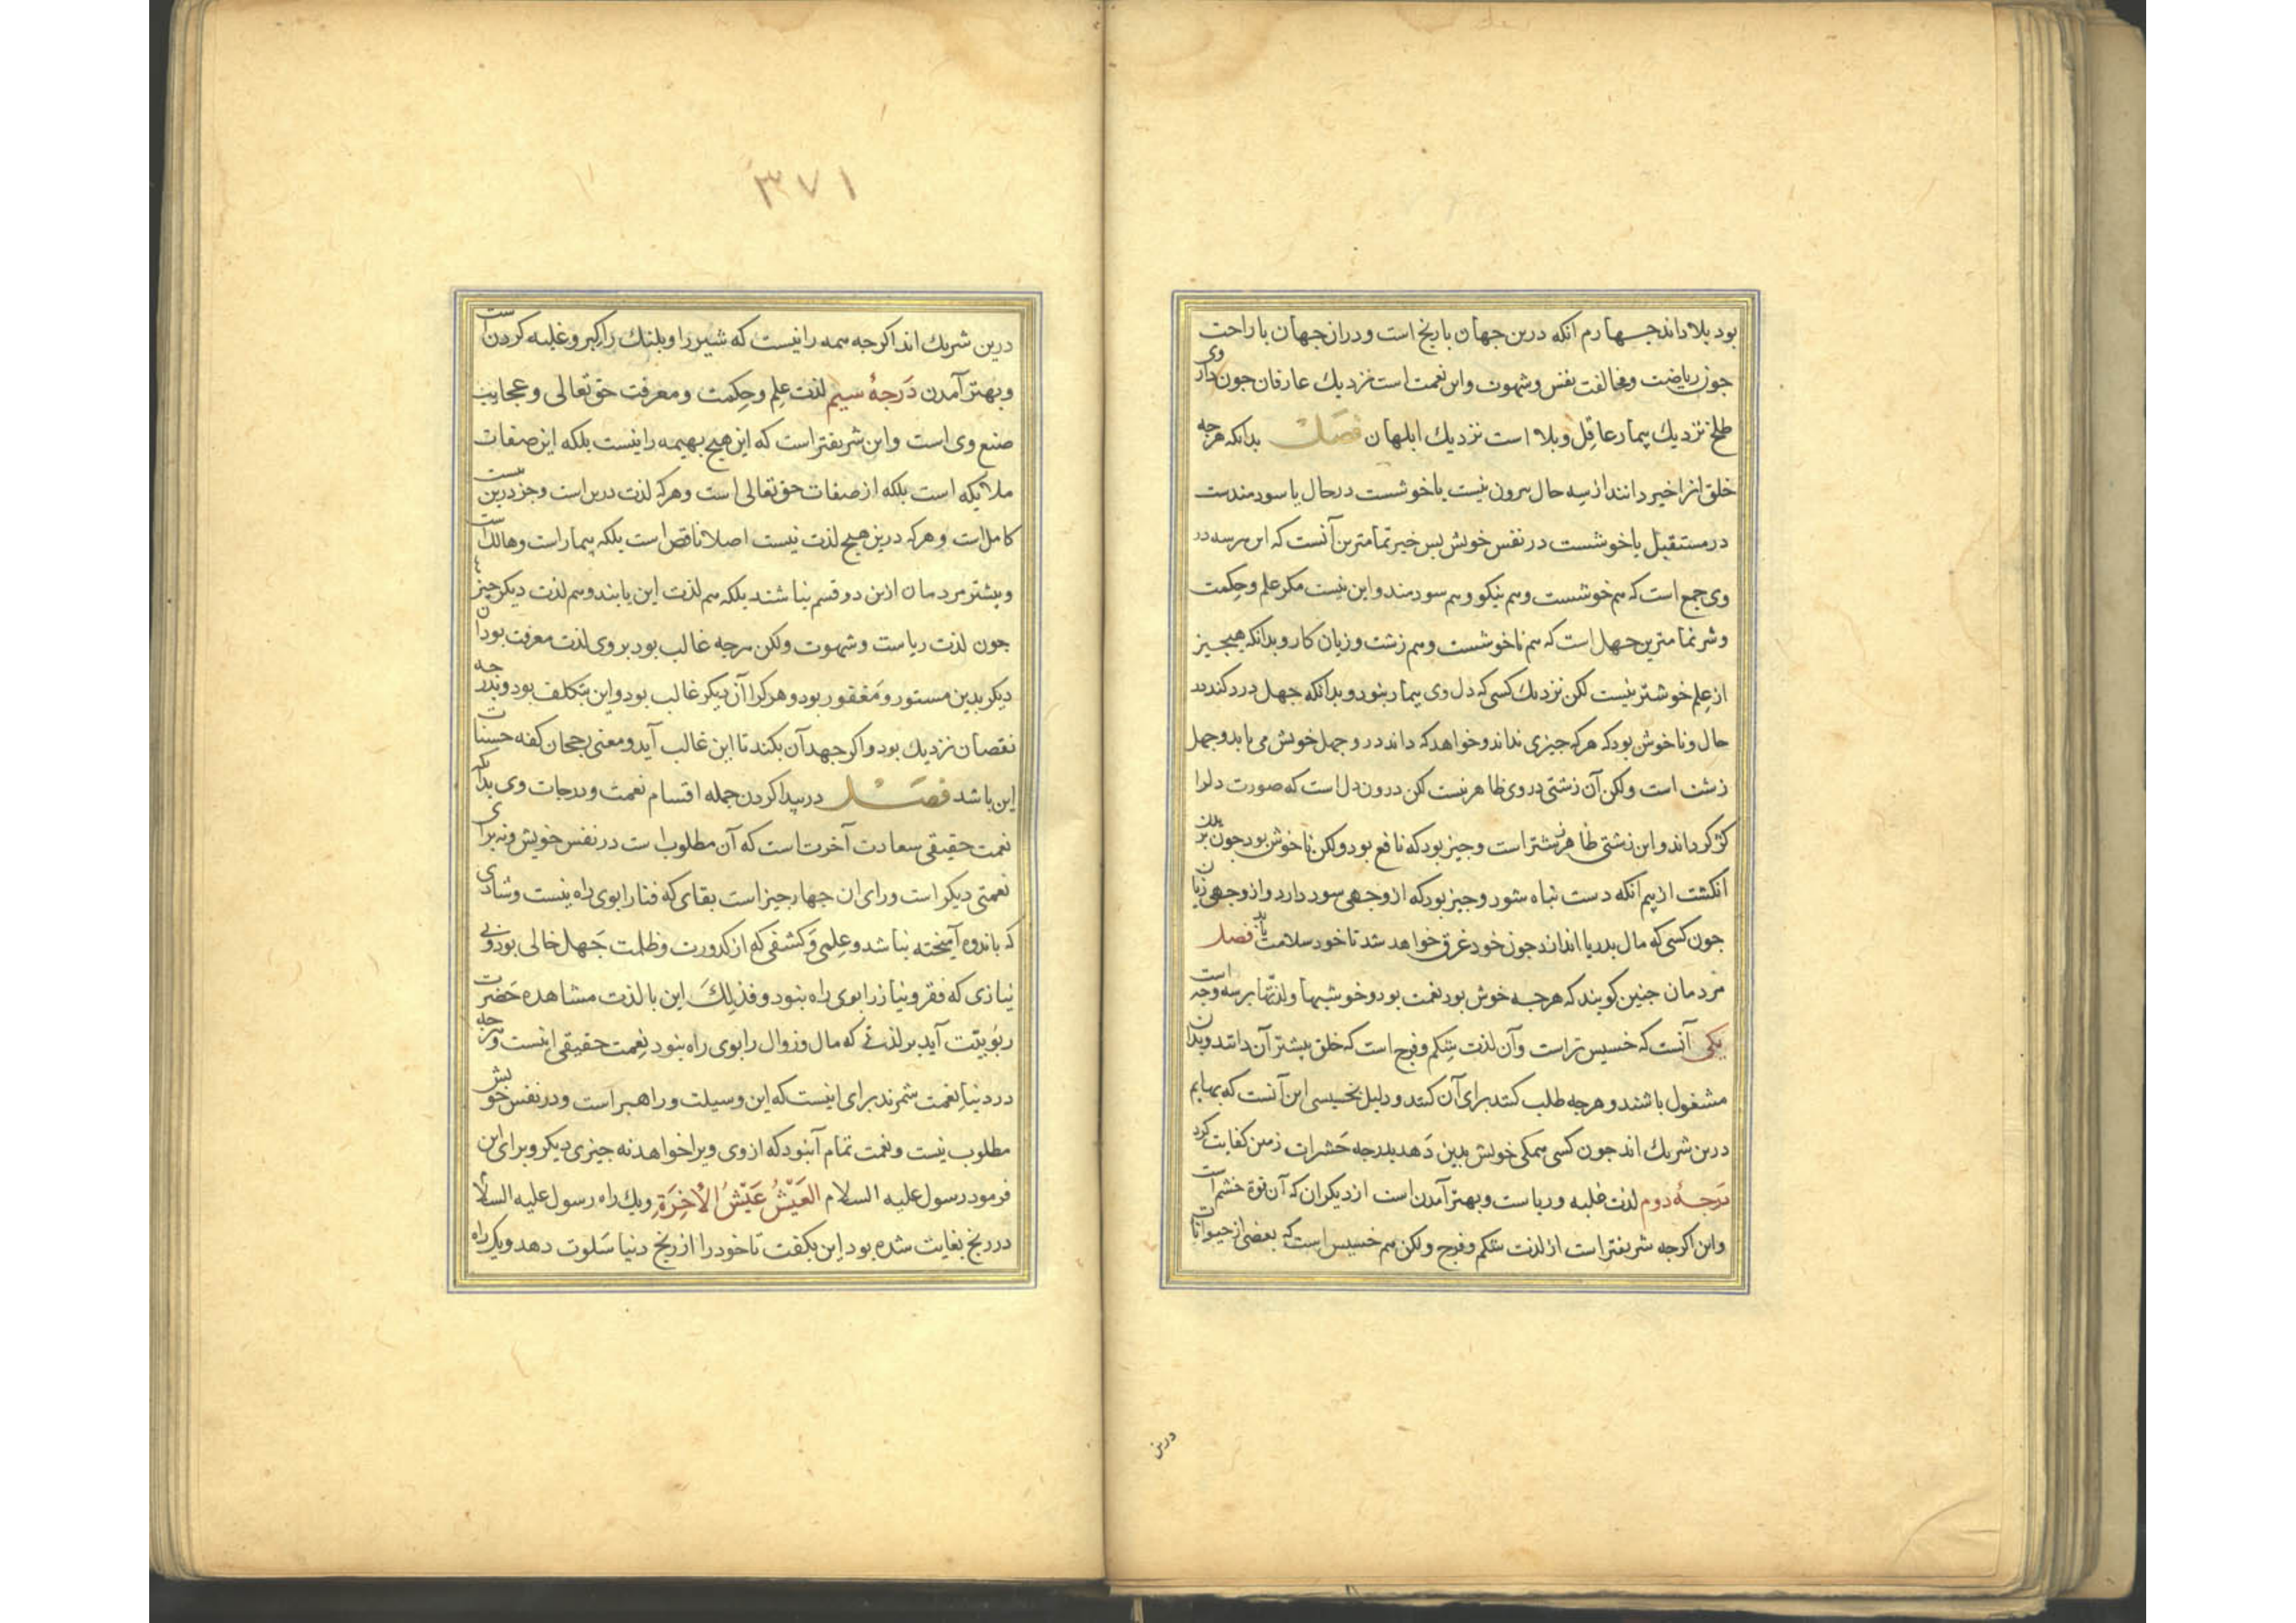 بود بلا داند جهارم آنکه درین جهان با رنج است و در ان جهان با راحت
جون ریاضت و مخالفت نفس و شهوت و این نعمت است نزدیك عارفان جون داروی
طلخ نزدیك بیمار عاقل و بلا است نزدیك ابلهان فصل بدانکه هرجه
خلق انرا خیر دانند از سه حال بیرون نیست یا خوشست در حال یا سودمندست
در مستقبل یا خوشست در نفس خویش بس خیر تمامترین آنست که این هرسه در
وی جمع است که هم خوشست و هم نیکو و هم سودمند و این نیست مکر علم و حکمت
و شر تمامترین جهل است که هم ناخوشست و هم زشت و زیان کار و بدانکه هیجیز
از علم خوشتر نیست لکن نزدیك کسی که دل وی بیمار نبود و بدانکه جهل درد کند در
حال و ناخوش بود که هرکه جیزی نداند و خواهد که داند درد جهل خویش می یابد و جهل
زشت است و لکن آن زشتی در وی ظاهر نیست لکن درون دل است که صورت دل را
کژ کرداند و این زشتی ظاهر زشتتر است و جیز بود که نافع بود و لکن ناخوش بود جون بریدن
انکشت از بیم انکه دست تباه شود و جیز بود که از وجهی سود دارد و از وجهی زیان
جون کسی که مال بدریا اندازد جون خود غرق خواهد شد تا خود سلامت یابد فصل
مردمان جنین کویند که هرجه خوش بود نعمت بود و خوشیها و لذتها بر سه وجه است
یکی آنست که خسیس تر است و آن لذت شکم و فرج است که خلق بیشتر آن دانند و بدان
مشغول باشند و هرجه طلب کنند برای آن کنند و دلیل بخسیسی این آنست که بهایم
درین شریك اند جون کسی همکی خویش بدین دهد بدرجه حشرات زمین کفایت کرد
درجهٔ دوم لذت غلبه و ریاست و بهتر آمدن است از دیکران که آن قوة خشم است
و این اکرجه شریفتر است از لذت شکم و فرج و لکن هم خسیس است که بعضی از حیوانات
درین
۳۷۱
درین شریك اند اکرجه همه را نیست که شیر را و بلنك را کبر و غلبه کردن است
و بهتر آمدن درجهٔ سیم لذت علم و حکمت و معرفت حق تعالی و عجایب
صنع وی است و این شریفتر است که این هیج بهیمه را نیست بلکه این صفات
ملایکه است بلکه از صفات حق تعالی است و هرکه لذت در این است و جز درین نیست
کامل است و هرکه درین هیج لذت نیست اصلا ناقص است بلکه بیمار است و هالك است
و بیشتر مردمان ازین دو قسم نباشند بلکه هم لذت این یابند و هم لذت دیکر جیزها
جون لذت ریاست و شهوت و لکن هرجه غالب بود بر وی لذت معرفت بود ان
دیکر بدین مستور و مقهور بود و هرکرا آن دیکر غالب بود و این بتکلف بود و بدرجه
نقصان نزدیك بود و اکر جهد آن بکند تا این غالب آید و معنی رجحان کفه حسنات
این باشد فصل در بیدا کردن جمله اقسام نعمت و درجات وی بدانکه
نعمت حقیقی سعادت آخرت است که آن مطلوب است در نفس خویش و نه برای
نعمتی دیکر است ورای ان جهار جیز است بقای که فنا را بوی راه نیست و شادی
که باندوه آمیخته نباشد و علمی و کشفی که از کدورت و ظلمت جهل خالی بود و بی
نیازی که فقر و نیاز را بوی راه نبود و فذلك این با لذت مشاهده حضرت
ربوبیت آید بر لذتی که مال و زوال را بوی راه نبود نعمت حقیقی اینست و هرجه
در دنیا نعمت شمرند برای اینست که این وسیلت و راهبر است و در نفس خویش
مطلوب نیست و نعمت تمام آنبود که از وی ویرا خواهد نه جیزی دیکر و برای این
فرمود رسول علیه السلام العیش عیش الاخرة و یك راه رسول علیه السلام
در رنج بغایت شده بود این بکفت تا خود را از رنج دنیا سلوت دهد و یك راه